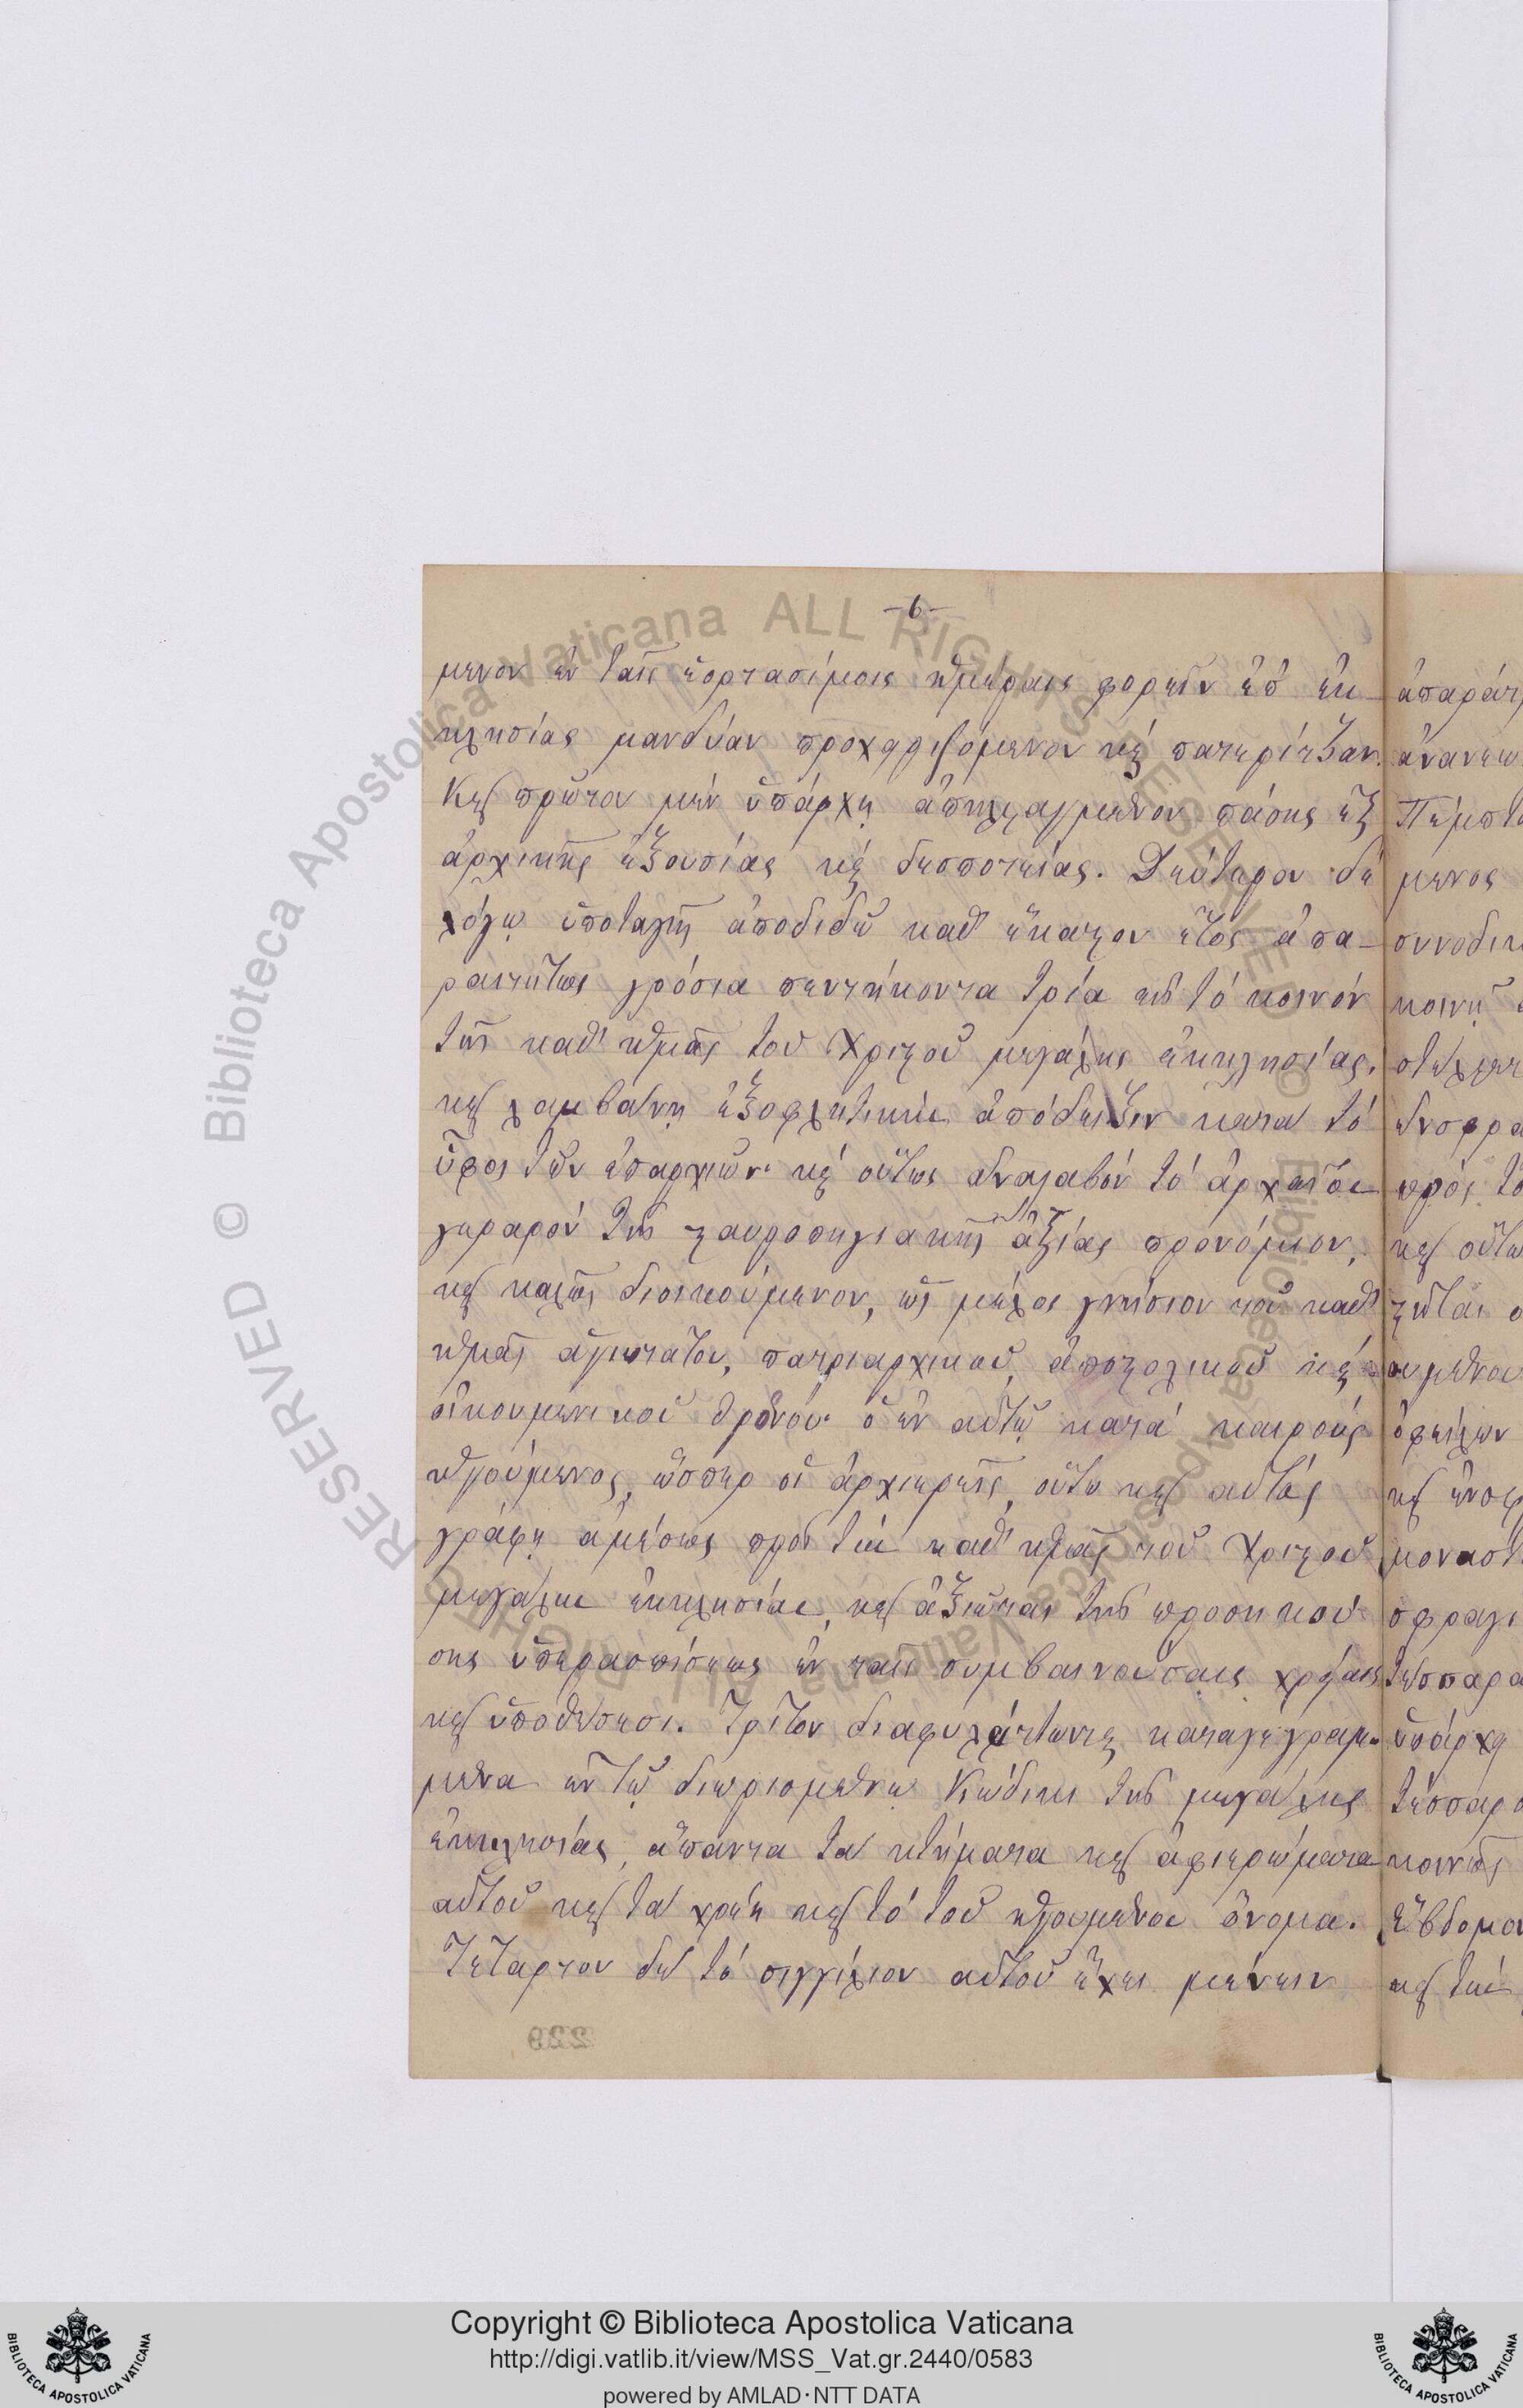 -6-
μενον ἐν ταῖς ἑορτασίμοις ἡμέραις φορεῖν ἐπ' ἐκ-
κλησίας μανδύαν προχαριζόμενον καὶ πατερίτζαν.
Καὶ πρῶτον μὲν ὑπάρχῃ ἀπηλλαγμένον πάσης ἐξ
ἀρχικῆς ἐξουσίας καὶ δεσποτείας. Δεύτερον δὲ
λόγῳ ὑποταγῆς ἀποδιδῷ καθ' ἕκαστον ἔτος ἀπα-
ραιτήτως γρόσια πεντήκοντα τρία εἰς τὸ κοινὸν
τῆς καθ' ἡμᾶς τοῦ Χριστοῦ μεγάλης ἐκκλησίας,
καὶ λαμβάνῃ ἐξοφλητικὴν ἀπόδειξιν κατὰ τὸ
ὕφος τῶν ἐπαρχιῶν· καὶ οὕτως ἀναλαβὸν τὸ ἀρχαῖον
γεραρὸν τῆς σταυροπηγιακῆς ἀξίας προνόμιον,
καὶ καλῶς διοικούμενον, ὡς μέλος γνήσιον τοῦ καθ'
ἡμᾶς ἁγιωτάτου, πατριαρχικοῦ, ἀποστολικοῦ καὶ
οἰκουμενικοῦ θρόνου· ὁ ἐν αὐτῷ κατὰ καιροὺς
ἡγούμενος, ὥσπερ οἱ ἀρχιερεῖς, οὕτω καὶ αὐτὸς
γράφῃ ἀμέσως πρὸς τὴν καθ' ἡμᾶς τοῦ Χριστοῦ
μεγάλην ἐκκλησίαν, καὶ ἀξιῶται τῆς προσηκού-
σης ὑπερασπίσεως ἐν ταῖς συμβαινούσαις χρείαις
καὶ ὑποθέσεσι. Τρίτον διαφυλάττωνται καταγεγραμ-
μένα ἐν τῷ διωρισμένῳ Κώδικι τῆς μεγάλης
ἐκκλησίας, ἅπαντα τὰ κτήματα καὶ ἀφιερώματα
αὐτοῦ καὶ τὰ χρέη καὶ τὸ τοῦ ἡγουμένου ὄνομα.
Τέταρτον δὲ τὸ σιγγίλιον αὐτοῦ ἔχει μένειν
229
Πέμπτο
μενος
συνοδικ
κοινῇ
πρὸς τὸ
καὶ οὕτω
ὀφείλων
μοναστ
σφραγι
τέσσαρα
ὑπάρχῃ
τέσσαρα
κοινῆς
Ἕβδομον
καὶ τὴν
Copyright © Biblioteca Apostolica Vaticana
http://digi.vatlib.it/view/MSS_Vat.gr.2440/0583
powered by AMLAD·NTT DATA
BIBLIOTECA APOSTOLICA VATICANA
BIBLIOTECA APOSTOLICA VATICANA
© Biblioteca Apostolica Vaticana ALL RIGHTS RESERVED
© Biblioteca Apostolica Vaticana ALL RIGHTS RESERVED